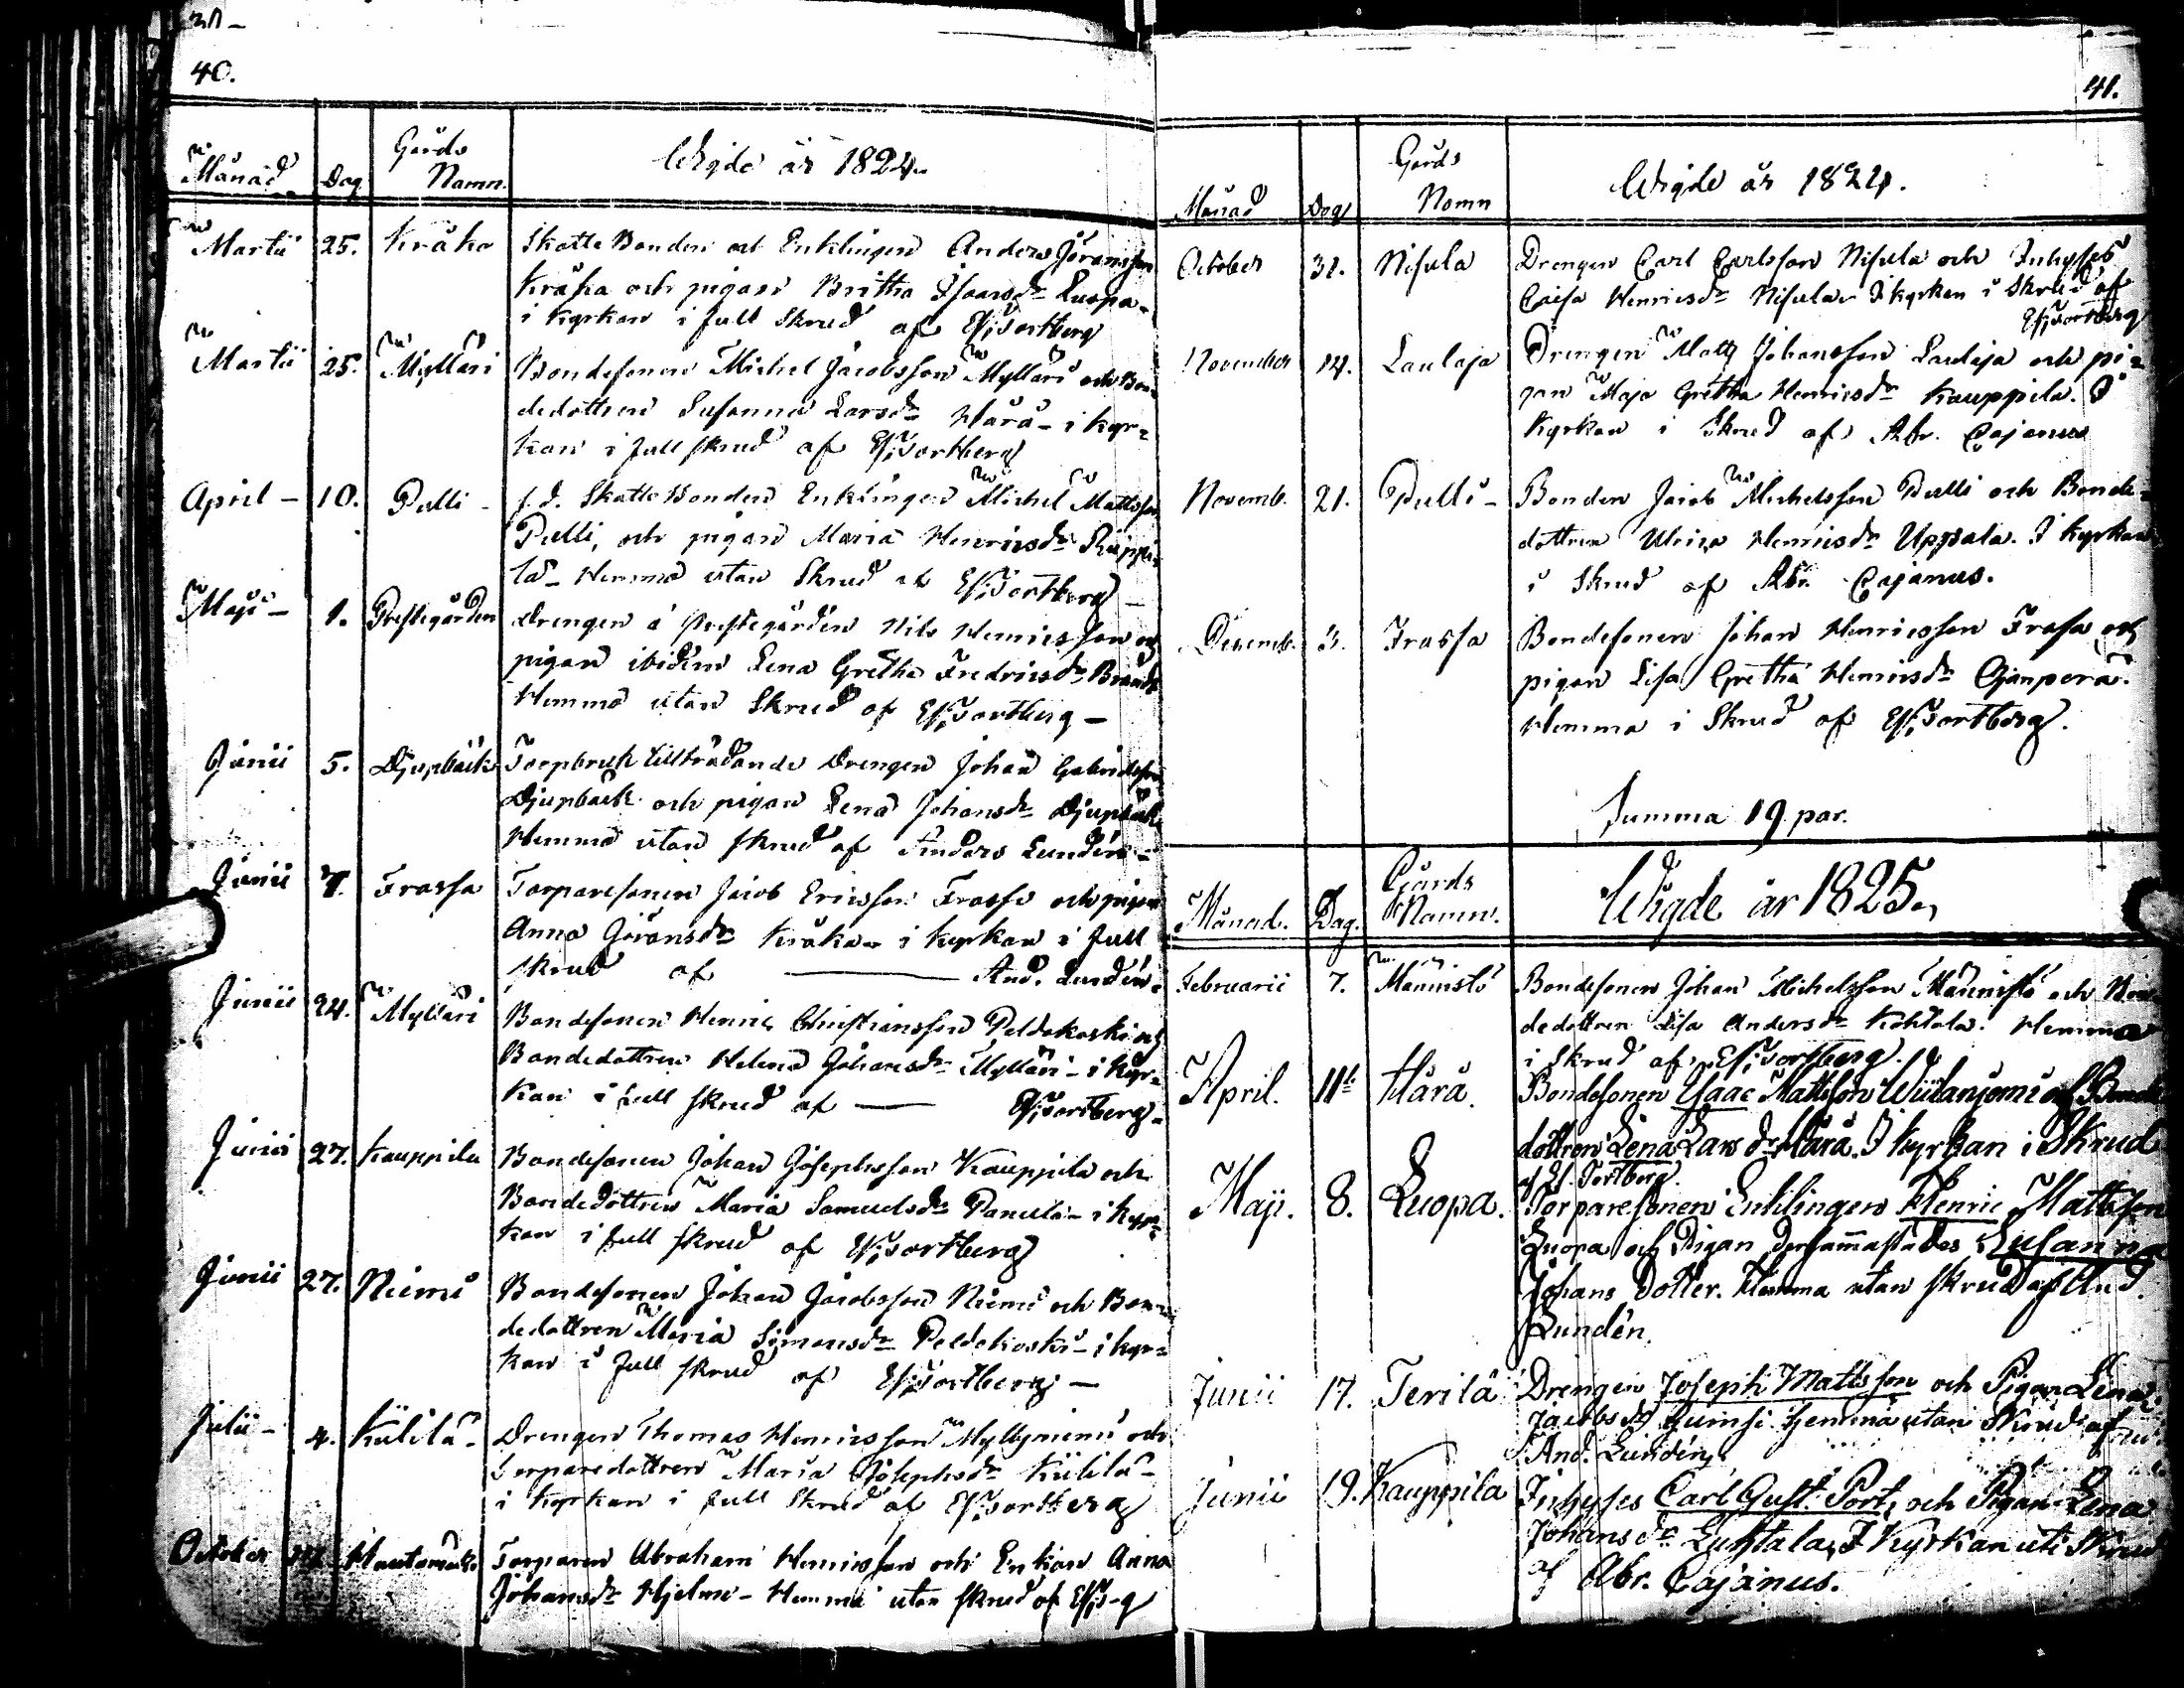 40.
Månad Dag Gårds Namn. Wigde år 1824.
Martii 25. Kråka Skatte Bonden och Enklingen Anders Jöransson
Kråka och pigan Britha Isaacsdr Luopa
i kyrkan i full skrud af Es; Tortberg
Martii 25. Myllari Bondesonen Michel Jacobsson Myllari och Bon-
dedottren Susanna Larsdr Hårå - i kyr-
kan i full skrud af Es; Tortberg
April - 10. Pulli - f.d. Skatte Bonden Enklingen Michel Mattsson
Pulli, och pigan Maria Henricsdr
Hemma utan Skrud af Es; Tortberg -
Maji - 1. Prestegården Drengen å Prestegården Nils Henricsson och
pigan ibidem Lena Gretha Fredricsdr
Hemma utan Skrud af Es; Tortberg -
Junii 5. Djupbäck Torpbruk tillträdande Drengen Johan Gabrielsson
Djupbäck och pigan Lena Johansdr Djupbäck
Hemma utan skrud af Anders Lundén -
Junii 7. Frassa Torparesonen Jacob Ericsson Frassa och pigan
Anna Göransdr Kråka - i kyrkan i full
skrud af And. Lundén.
Junii 24. Myllari Bondesonen Henric Christiansson Peldokoski och
Bondedottren Helena Johansdr Myllari - i kyr-
kan i full skrud af Es; Tortberg -
Junii 27. Kauppila Bondesonen Johan Josephsson Kauppila och
Bondedottren Maria Samuelsdr Panula - i kyr-
kan i full skrud af Es; Tortberg
Junii 27. Niemi Bondesonen Johan Jacobsson Niemi och Bon-
dedottren Maria Simonsdr Peldokoski - i kyr-
kan i full skrud af Es; Tortberg -
Julii - 4. Kulila - Drengen Thomas Henricsson Myllyniemi och
Torparedottren Maria Josephsdr Kulila -
i kyrkan i full Skrud af Es; Tortberg
October Torparen Abraham Henricsson och Enkan Anna
Johansdr Hjelm - Hemma utan skrud af Es; T-g
41.
Månad Dag Gårds Namn Wigde år 1824.
October 31. Nisula Drengen Carl Carlsson Nisula och Inhyses
Caisa Henricsdr Nisula - I kyrkan i Skrud af
Es; Tortberg
November 14. Laulaja Drengen Matts Johansson Laulaja och pi-
gan Maja Gretha Henricsdr Kauppila. I
Kyrkan i Skrud af Abr. Cajanus
Novemb. 21. Pulli - Bonden Jacob Michelsson Pulli och Bonde-
dottren Ulrica Henricsdr Uppsala. I kyrkan
i Skrud af Abr. Cajanus.
Decemb. 3. Frassa Bondesonen Johan Henricsson Frasa och
pigan Lisa Gretha Henricsdr Ojanperä.
Hemma i Skrud af Es; Tortberg.
Summa 19 par.
Månad. Dag. Gårds Namn. Wigde år 1825.
Februarii 7. Männistö Bondesonen Johan Michelsson Männistö och Bon-
dedottren Lisa Andersdr Kohtala. Hemma
i Skrud af Es; Tortberg.
April. 11te Hårå. Bondesonen Isaac Mattsson Wiitaniemi och Bonde
dottren Lena Lars dr Hårå. I kyrkan i Skrud
af Es. Tortberg.
Maji. 8. Luopa. Torparesonen Enklingen Henric Mattsson
Luopa och Pigan dersammastädes Susanna
Johans dotter. Hemma utan skrud af And.
Lundén.
Junii 17. Terilä Drengen Joseph Mattsson och Pigan Lena
Jacobsdr Hemma utan Skrud af
And. Lundén.
Junii 19. Kauppila Inhyses Carl Gust. Port, och Pigan Lena
Johansdr Luhtala, I Kyrkan uti Skrud
af Abr. Cajanus.